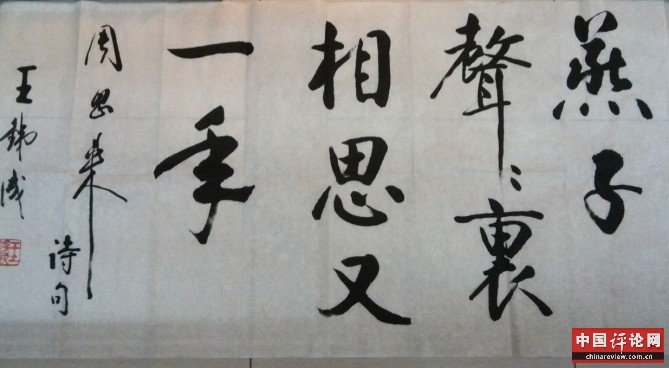 燕子
聲〻裏
相思又
一年
周恩来
诗句
王
中国评论网
chinareview.com